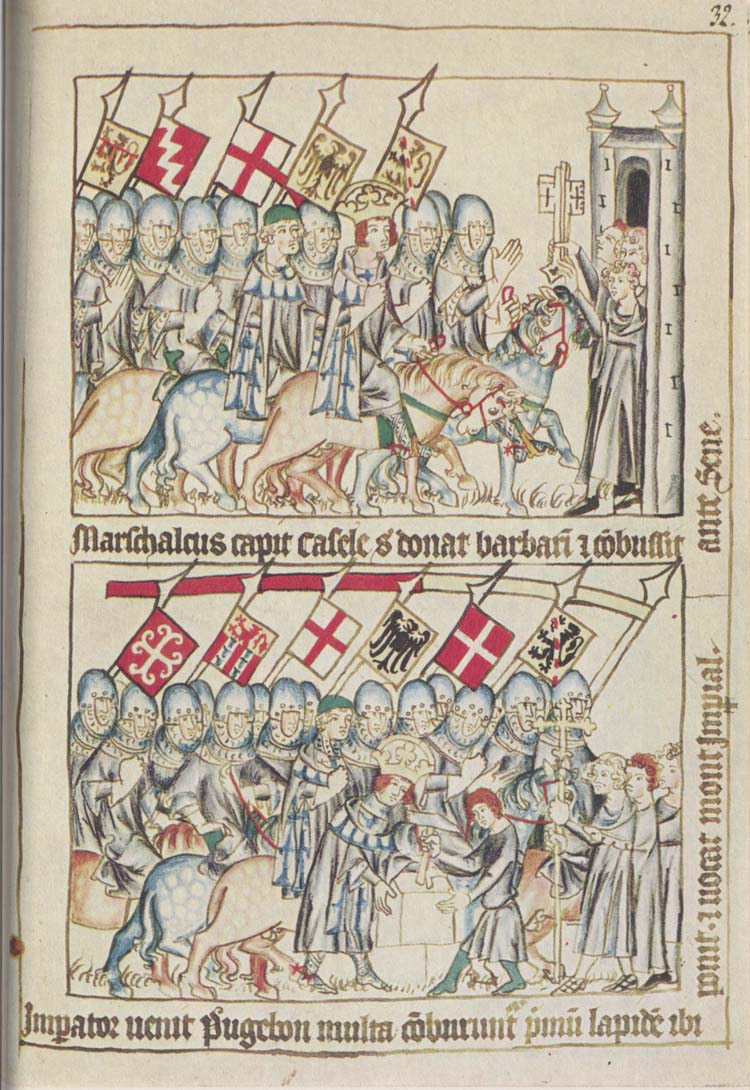 32.
Marschalcus capit Casele & donat barbari ⁊ cōbussit
ante Sene.
Imperator uenit Pugebon multa cōburunt pimū lapidē ibi
ponit ⁊ uocat mont Impial.